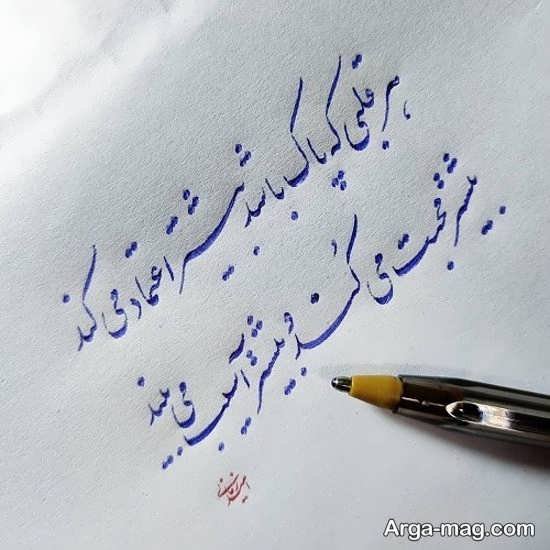 هر قلبی که پاک باشد بیشتر اعتماد می کند
بیشتر محبت می کند و بیشتر آسیب می بیند
Arga-mag.com